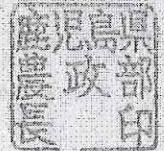 鹿児島県
農政部
長印